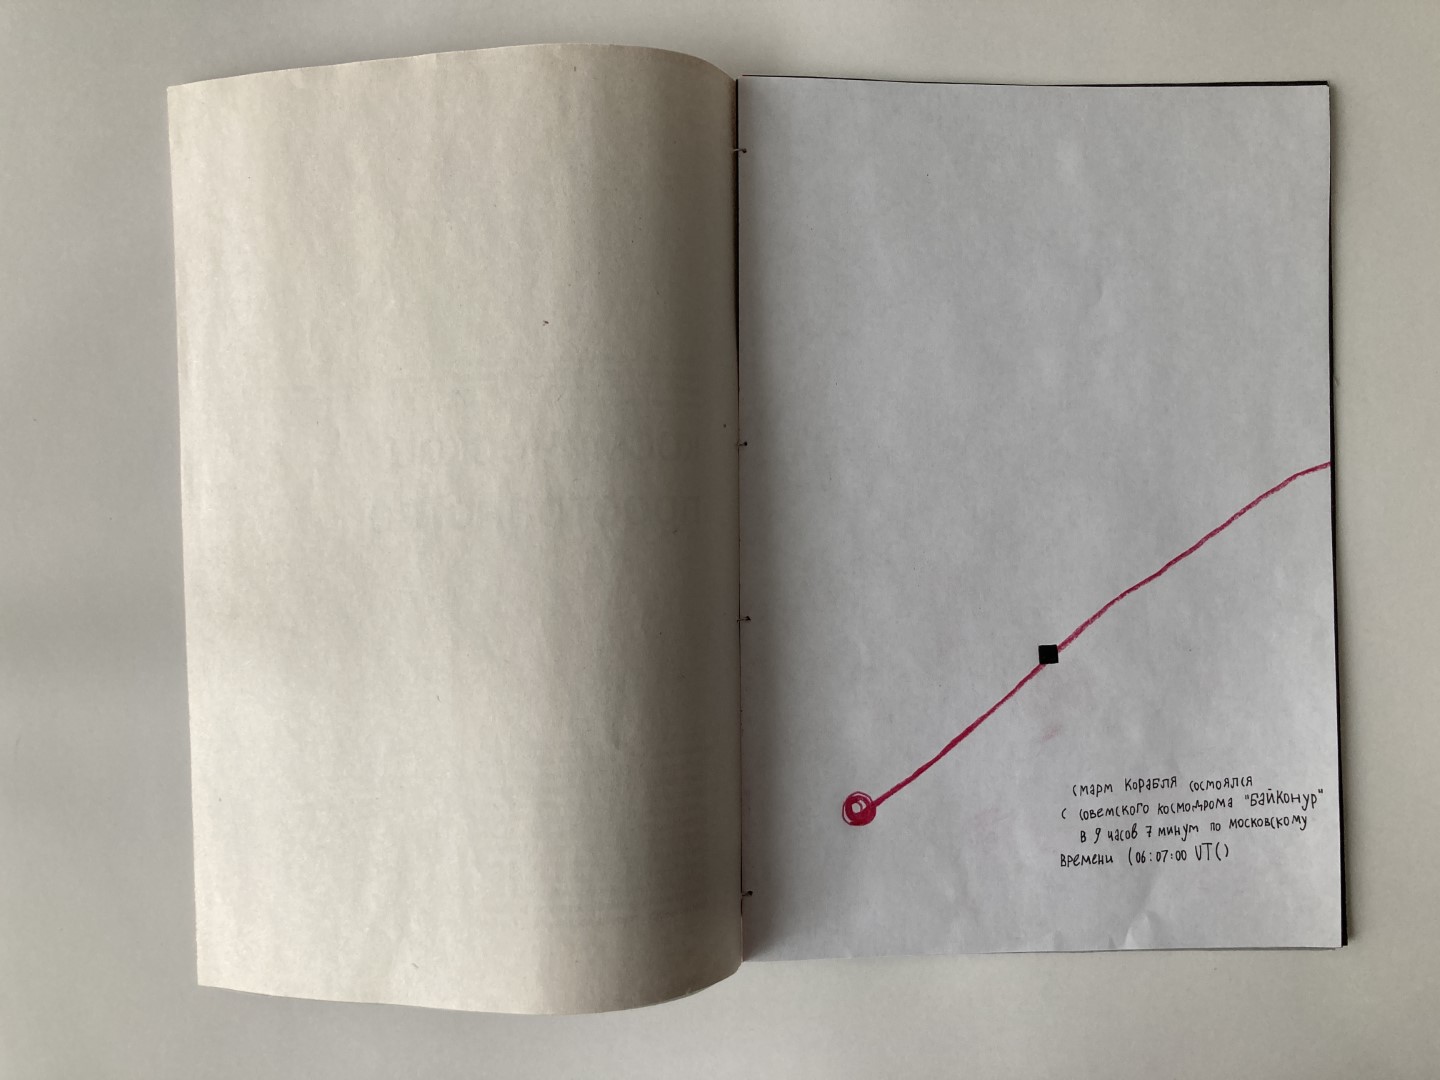 старт корабля состоялся
с советского космодрома "Байконур"
в 9 часов 7 минут по московскому
времени (06:07:00 UTC)